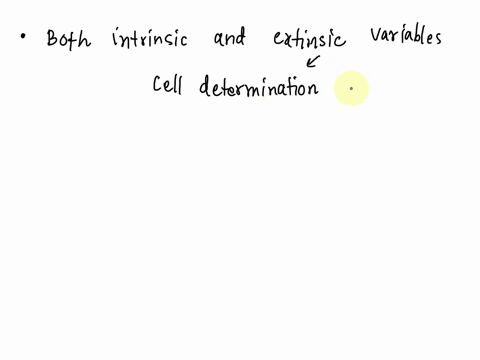 • Both intrinsic and extinsic variables
Cell determination